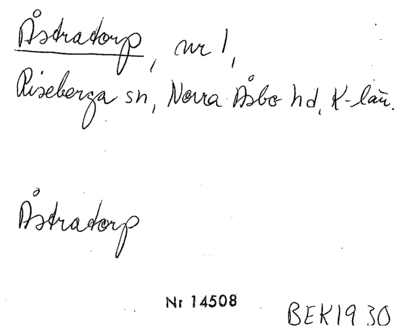 Åstratorp, nr 1,
Riseberga sn, Norra Åsbo hd, K-län.
Åstratorp
Nr 14508
BEK1930